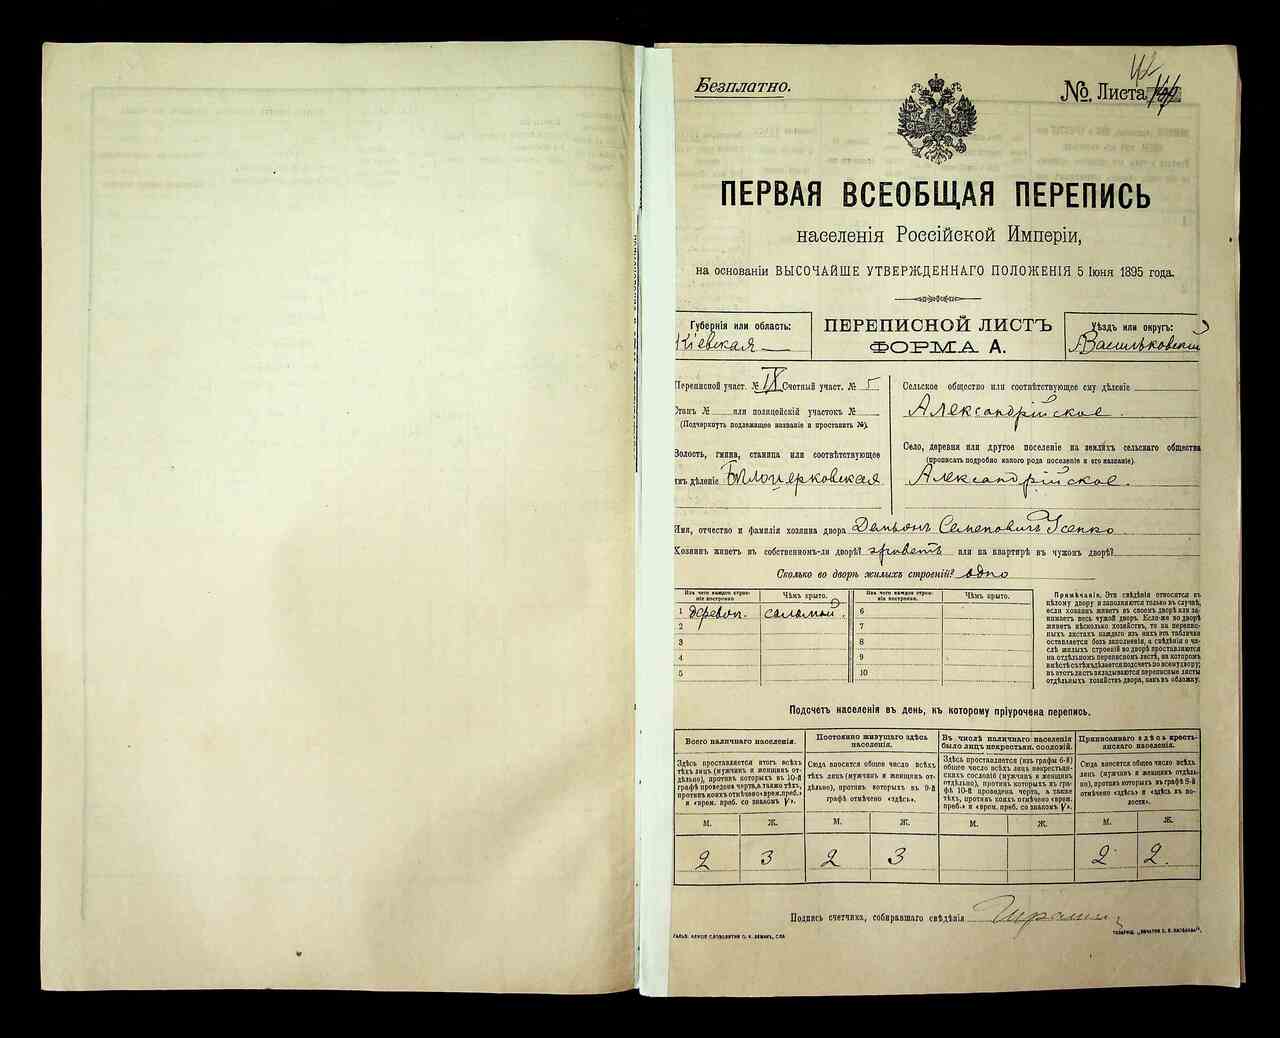 Безплатно.
42
№. Листа
ПЕРВАЯ ВСЕОБЩАЯ ПЕРЕПИСЬ
населенія Россійской Имперіи,
на основаніи ВЫСОЧАЙШЕ УТВЕРЖДЕННАГО ПОЛОЖЕНІЯ 5 Іюня 1895 года.
Губернія или область:
Кіевская
ПЕРЕПИСНОЙ ЛИСТЪ
ФОРМА А.
Уѣздъ или округъ:
Васильковскій
Переписной участ. № IX Счетный участ. № 5
Станъ № или полицейскій участокъ №
(Подчеркнуть подлежащее названіе и проставить №).
Волость, гмина, станица или соотвѣтствующее
имъ дѣленіе Бѣлоцерковская
Сельское общество или соотвѣтствующее ему дѣленіе
Александрійское.
Село, деревня или другое поселеніе на земляхъ сельскаго общества
(прописать подробно какого рода поселеніе и его названіе).
Александрійское.
Имя, отчество и фамилія хозяина двора Демьянъ Семеновичъ Усенко
Хозяинъ живетъ въ собственномъ-ли дворѣ? живетъ или на квартирѣ въ чужомъ дворѣ?
Сколько во дворѣ жилыхъ строеній? одно
Изъ чего каждое строеніе построено.
Чѣмъ крыто.
Изъ чего каждое строеніе построено.
Чѣмъ крыто.
1 деревян. саломой 6
2 7
3 8
4 9
5 10
Примѣчаніе. Эти свѣдѣнія относятся къ
цѣлому двору и заполняются только въ случаѣ,
если хозяинъ живетъ въ своемъ дворѣ или занимаетъ
весь чужой дворъ. Если-же во дворѣ
живетъ нѣсколько хозяйствъ, то на переписныхъ
листахъ каждаго изъ нихъ эта табличка
оставляется безъ заполненія, а свѣдѣнія о числѣ
жилыхъ строеній во дворѣ проставляются
на отдѣльномъ переписномъ листѣ, на которомъ
вмѣстѣ съ тѣмъ дѣлается подсчетъ по всему двору;
въ этотъ листъ вкладываются переписные листы
отдѣльныхъ хозяйствъ двора, какъ въ обложку.
Подсчетъ населенія въ день, къ которому пріурочена перепись.
Всего наличнаго населенія.
Здѣсь проставляется итогъ всѣхъ
тѣхъ лицъ (мужчинъ и женщинъ отдѣльно),
противъ которыхъ въ 10-й
графѣ проведена черта, а также тѣхъ,
противъ коихъ отмѣчено «врем. преб.»
и «врем. преб. со знакомъ V».
Постоянно живущаго здѣсь
населенія.
Сюда вносятся общее число всѣхъ
тѣхъ лицъ (мужчинъ и женщинъ отдѣльно),
противъ которыхъ въ 9-й
графѣ отмѣчено «здѣсь».
Въ числѣ наличнаго населенія
было лицъ некрестьян. сословій.
Здѣсь проставляется (изъ графы 6-й)
общее число всѣхъ лицъ некрестьянскихъ
сословій (мужчинъ и женщинъ
отдѣльно), противъ которыхъ въ графѣ
10-й проведена черта, а также
тѣхъ, противъ коихъ отмѣчено «врем.
преб.» и «врем. преб. со знакомъ V».
Приписаннаго здѣсь крестьянскаго
населенія.
Сюда вносятся общее число всѣхъ
лицъ (мужчинъ и женщинъ отдѣльно),
противъ которыхъ въ графѣ 8-й
отмѣчено «здѣсь» и «здѣсь въ волости».
М. Ж. М. Ж. М. Ж. М. Ж.
2 3 2 3 2 2.
Подпись счетчика, собиравшаго свѣдѣнія